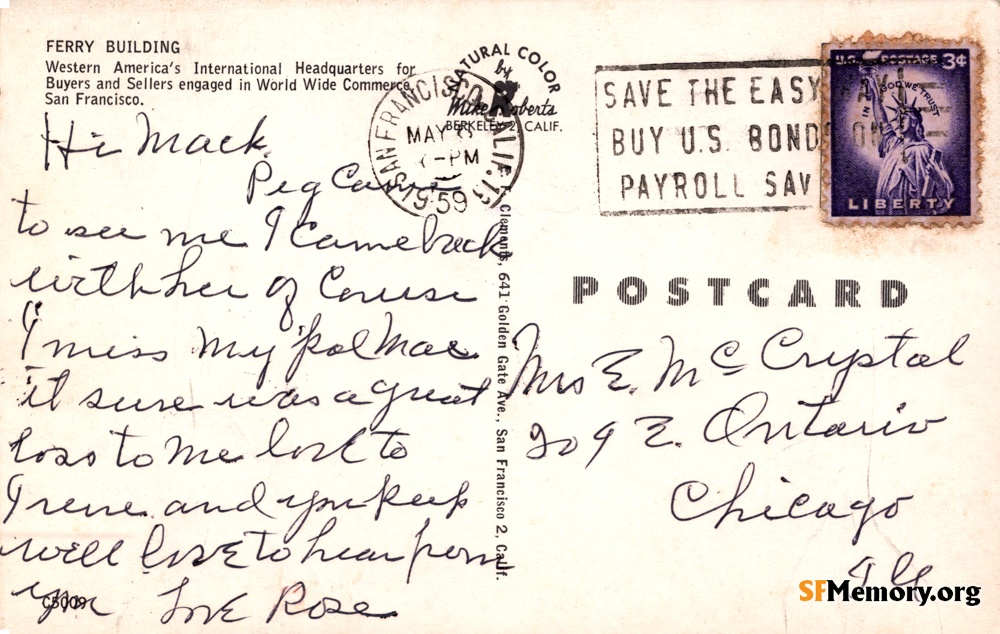 FERRY BUILDING
Western America's International Headquarters for
Buyers and Sellers engaged in World Wide Commerce,
San Francisco.
NATURAL COLOR
by
Mike Roberts
BERKELEY 2, CALIF.
SAN FRANCISCO CALIF.
MAY
-PM
1959
SAVE THE EASY WAY
BUY U.S. BONDS ON
PAYROLL SAV
U.S. POSTAGE 3¢
IN GOD WE TRUST
LIBERTY
Hi Mack
Peg Came
to see me I Came back
with her of Couse
I miss my pal Mac
it sure was a great
loss to me love to
Irene and you keep
well love to hear from
you Love Rose
Clements, 641 Golden Gate Ave., San Francisco 2, Calif.
POSTCARD
Mrs E. Mc Crystal
209 E. Ontario
Chicago
Ill
C5009
SFMemory.org